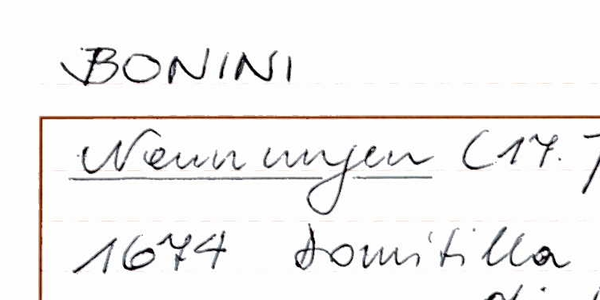 BONINI
Nennungen (17.
1674 Domitilla